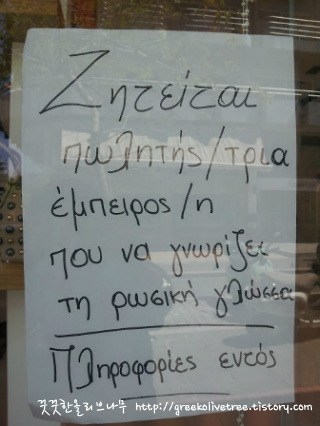 Ζητείται
πωλητής/τρια
έμπειρος/η
που να γνωρίζει
τη ρωσική γλώσσα
Πληροφορίες εντός
꿋꿋한올리브나무 http://greekolivetree.tistory.com/